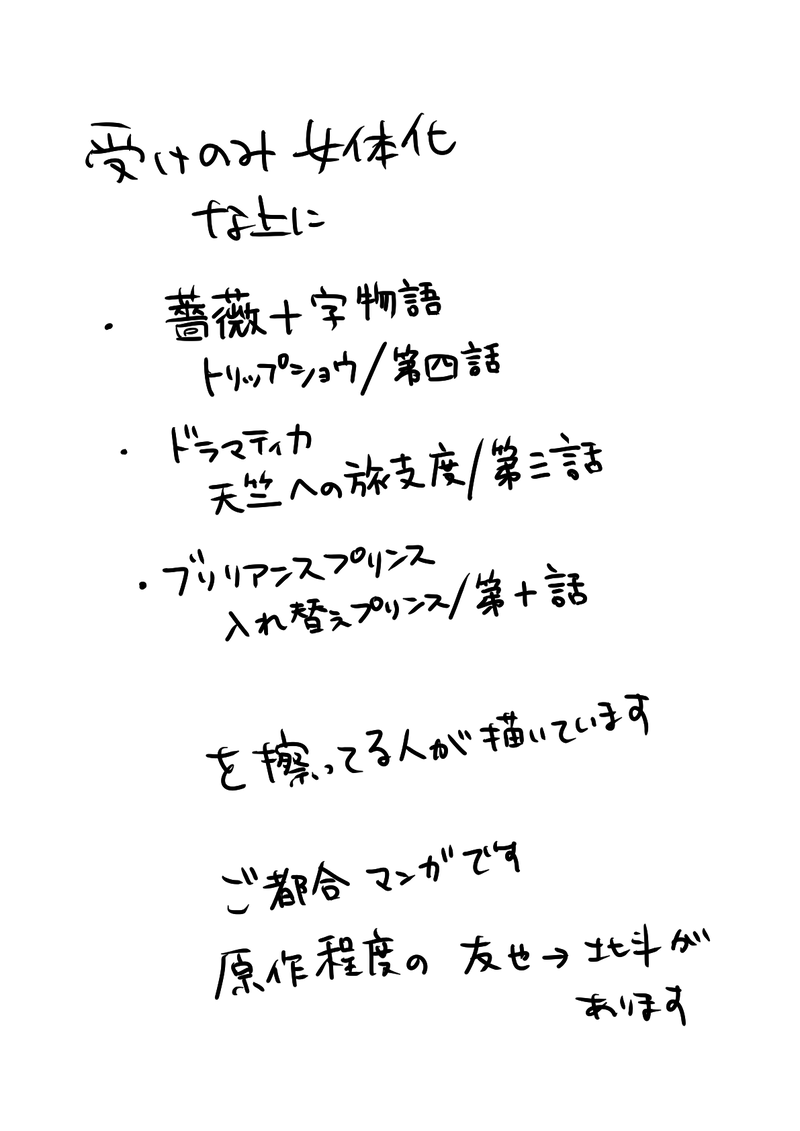 受けのみ 女体化
な上に
・ 薔薇十字物語
トリップショウ/第四話
・ ドラマティカ
天竺への旅支度/第三話
・ブリリアンスプリンス
入れ替えプリンス/第十話
を擦ってる人が描いています
ご都合マンガです
原作程度の 友也→北斗が
あります